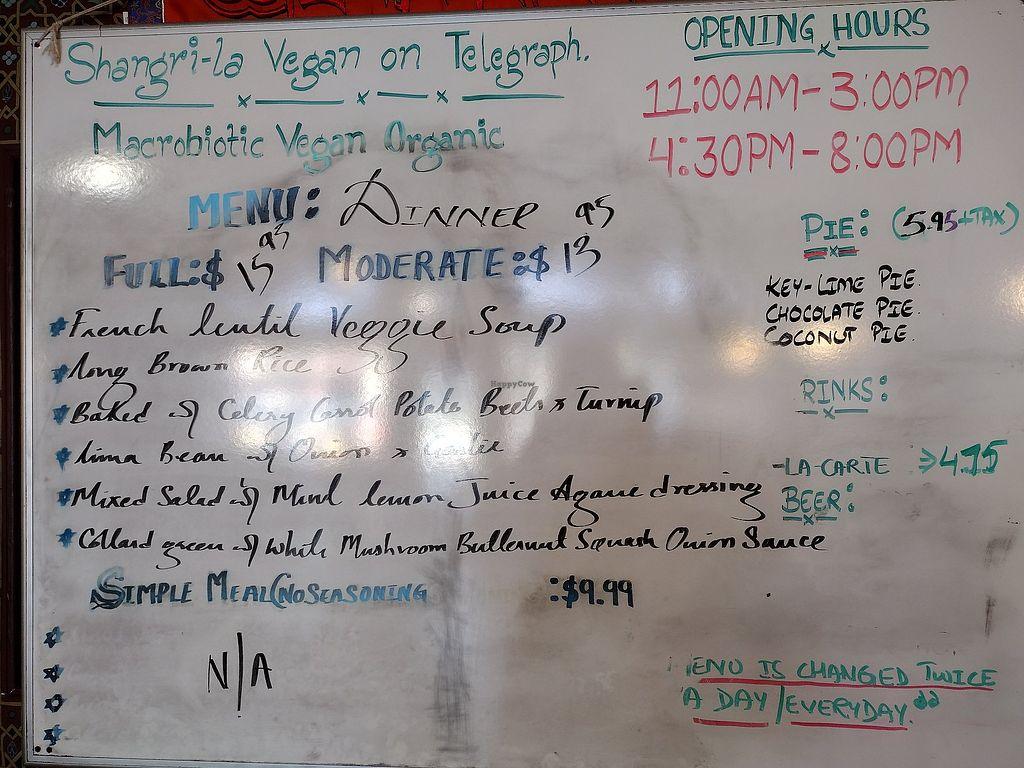 Shangri-la Vegan on Telegraph.
Macrobiotic Vegan Organic
OPENING HOURS
11:00AM - 3:00PM
4:30PM - 8:00PM
MENU: DINNER
FULL: $15 95 MODERATE: $13 95
French lentil Veggie Soup
long Brown Rice
Baked w/ Celery Carrot Potato Beets & Turnip
lima Bean w/ Onion & Garlic
Mixed Salad w/ Mint lemon Juice Agave dressing
Collard green w/ White Mushroom Butternut Squash Onion Sauce
SIMPLE MEAL (NO SEASONING :$9.99
N/A
PIE: (5.95+TAX)
KEY-LIME PIE.
CHOCOLATE PIE.
COCONUT PIE.
RINKS:
-LA-CARTE
BEER:
ENU IS CHANGED TWICE
A DAY / EVERYDAY.
HappyCow